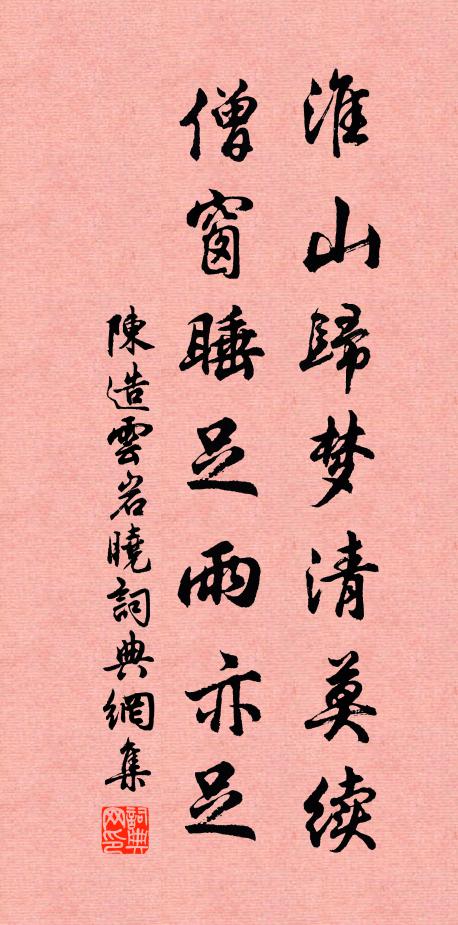 淮山歸梦清莫续
僧窗睡足雨亦足
陳造雲岩曉詞典網集
詞典网印